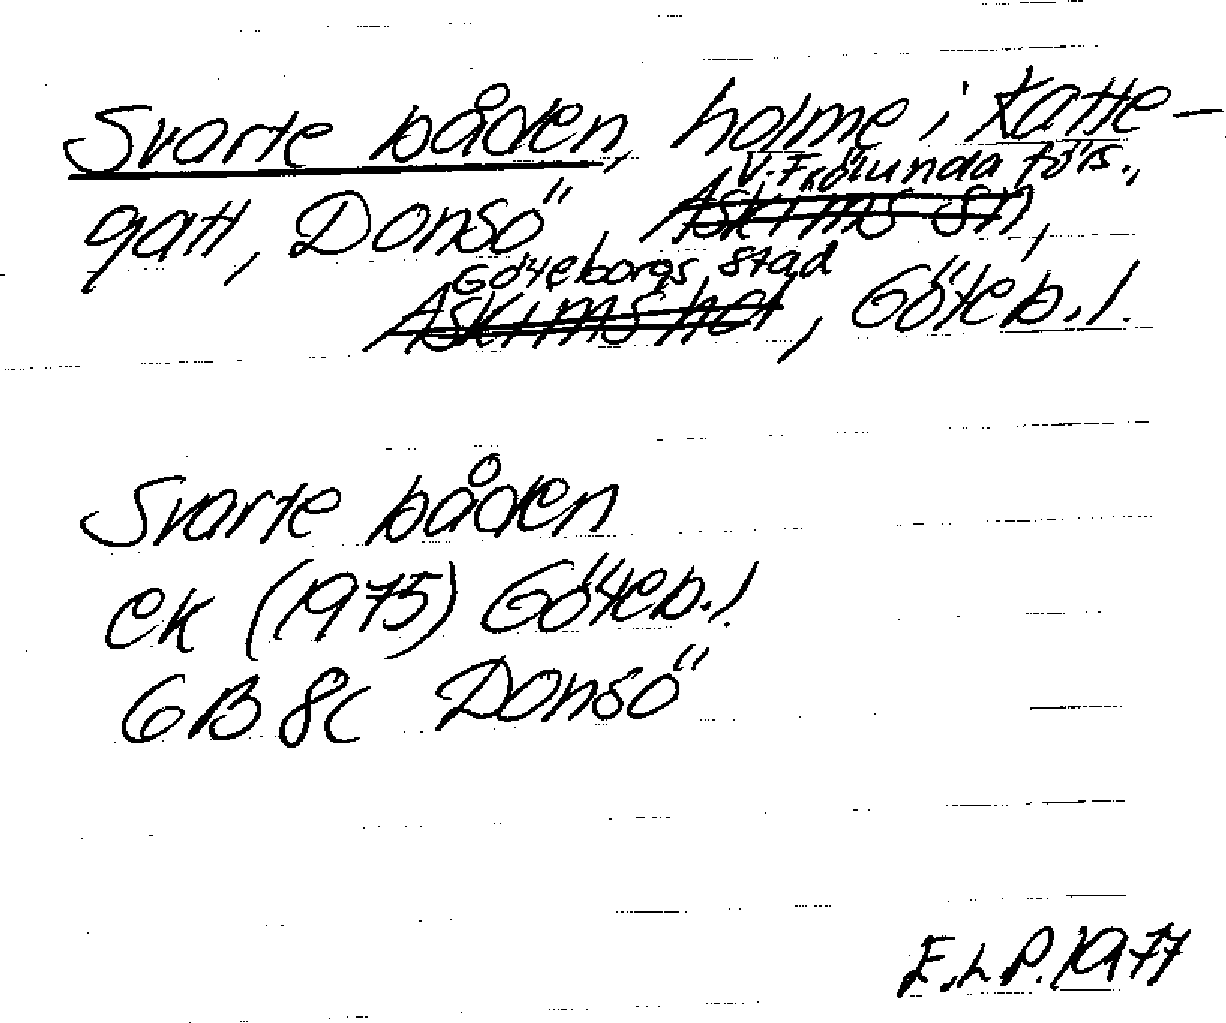 Svarte båden, holme i Katte-
V. Frölunda förs.,
gatt, Donsö, Askims sn,
Göteborgs stad
Askims hd, Göteb. l.
Svarte båden
ek (1975) Göteb. l.
6B 8c Donsö
E.L.P. 1977